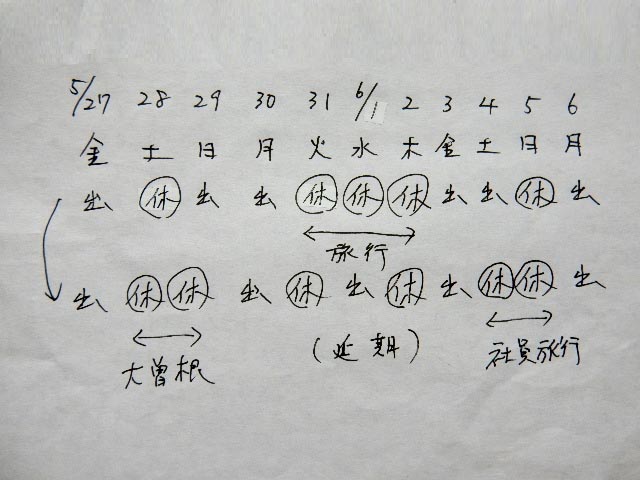 5/27 28 29 30 31 6/1 2 3 4 5 6
金 土 日 月 火 水 木 金 土 日 月
出 休 出 出 休 休 休 出 出 休 出
旅行
出 休 休 出 休 出 休 出 休 休 出
大曽根 (延期) 社員旅行